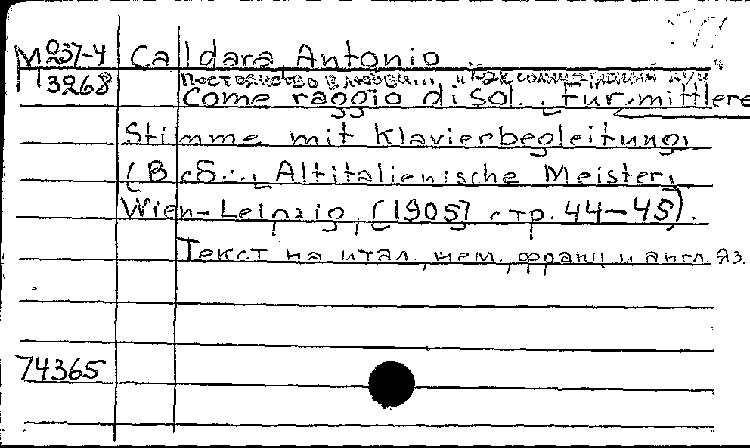 М 237-4 Caldara, Antonio.
3268 Постоянство в любви...
Come raggio di sol. Für mittlere
Stimme mit Klavierbegleitung.
(В сб.: Altitalienische Meister,
Wien-Leipzig, [1905] стр. 44-45).
Текст на итал., нем., франц. и англ. яз.
74365